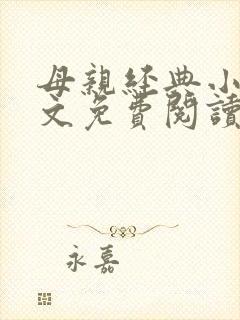 母親經典小
文免費閱讀
永嘉